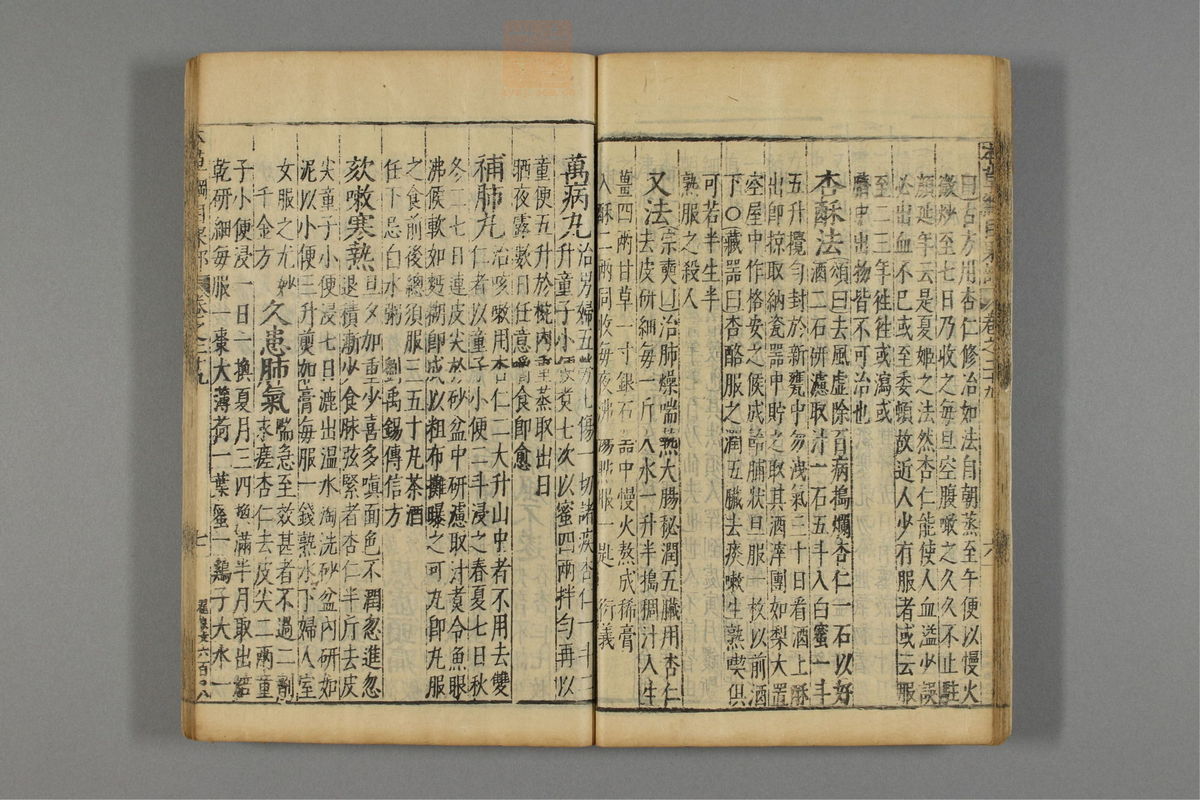 本草綱目果部 卷之二十九 六
曰古方用杏仁修治如法自朝蒸至午便以慢火
微炒至七日乃收之每旦空腹噉之久久不止駐
顏延年云是夏姬之法然杏仁能使人血溢少誤
必出血不已或至委頓故近人少有服者或云服
至二三年徃徃或瀉或
臍中出物皆不可治也
杏酥法頌曰去風虛除百病搗爛杏仁一石以好
酒二石研濾取清一石五斗入白蜜一斗
五升攪勻封於新甕中勿洩氣三十日看酒上酥
出即掠取納瓷器中貯之取其酒滓團如梨大置
空屋中作格安之候成飴脯狀旦服一枚以前酒
下○藏器曰杏酪服之潤五臟去痰嗽生熟喫俱
可若半生半
熟服之殺人
又法宗奭曰治肺燥喘熱大腸秘潤五臟用杏仁
去皮研細每一斤入水一升半搗稠汁入生
薑四兩甘草一寸銀石器中慢火熬成稀膏
入酥二兩同收每夜沸湯點服一匙 衍義
萬病丸治男婦五勞七傷一切諸疾杏仁一斗二
升童子小便煑七次以蜜四兩拌勻再以
童便五升於椀內重蒸取出日
晒夜露數日任意嚼食即愈
補肺丸治咳嗽用杏仁二大升山中者不用去雙
仁者以童子小便二斗浸之春夏七日秋
冬二七日連皮尖於砂盆中研濾取汁煑令魚眼
沸候軟如麪糊即成以粗布攤曝之可丸即丸服
之食前後總須服三五十丸茶酒
任下忌白水粥 劉禹錫傳信方
欬嗽寒熱旦夕加重少喜多嗔面色不潤忽進忽
退積漸少食脉弦緊者杏仁半斤去皮
尖童子小便浸七日漉出溫水淘洗砂盆內研如
泥以小便三升煎如膏每服一錢熟水下婦人室
女服之尤妙
千金方
久患肺氣喘急至效甚者不過二劑
永瘥杏仁去皮尖二兩童
子小便浸一日一換夏月三四換滿半月取出焙
乾研細每服一棗大薄荷一葉蜜一鷄子大水一
本草綱目果部 卷之二十九 七